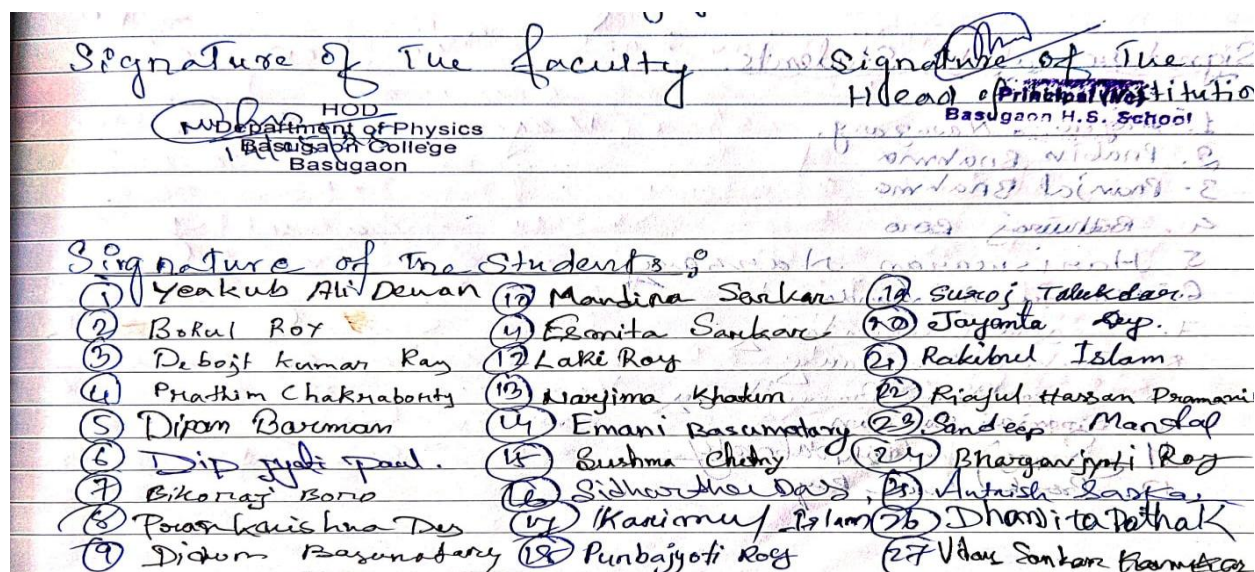 Signature of The faculty
HOD
Department of Physics
Basugaon College
Basugaon
Signature of The
Head of Institution
Principal (I/c)
Basugaon H.S. School
Signature of The Students :
① Yeakub Ali Dewan
② Bokul Roy
③ Debojit Kumar Ray
④ Prathim Chakraborty
⑤ Dipam Barman
⑥ Dip jyoti paul.
⑦ Bikoraj Boro
⑧ Poran Krishna Das
⑨ Basumatary
⑩ Mandina Sarkar
⑪ Esmita Sarkar
⑫ Laki Roy
⑬ Narjima Khatun
⑭ Emani Basumatary
⑮ Sushma Chetry
⑯ Sidhartha Das
⑰ Karimul Islam
⑱ Purbajyoti Roy
⑲ Suroj Talukdar
⑳ Jayanta Dey.
㉑ Rakibul Islam
㉒ Riajul Hassan Pramani
㉓ Sandeep Mandal
㉔ Bhargavjyoti Roy
㉕
㉖ Dhandita Pathak
㉗ Sankar Karmakar